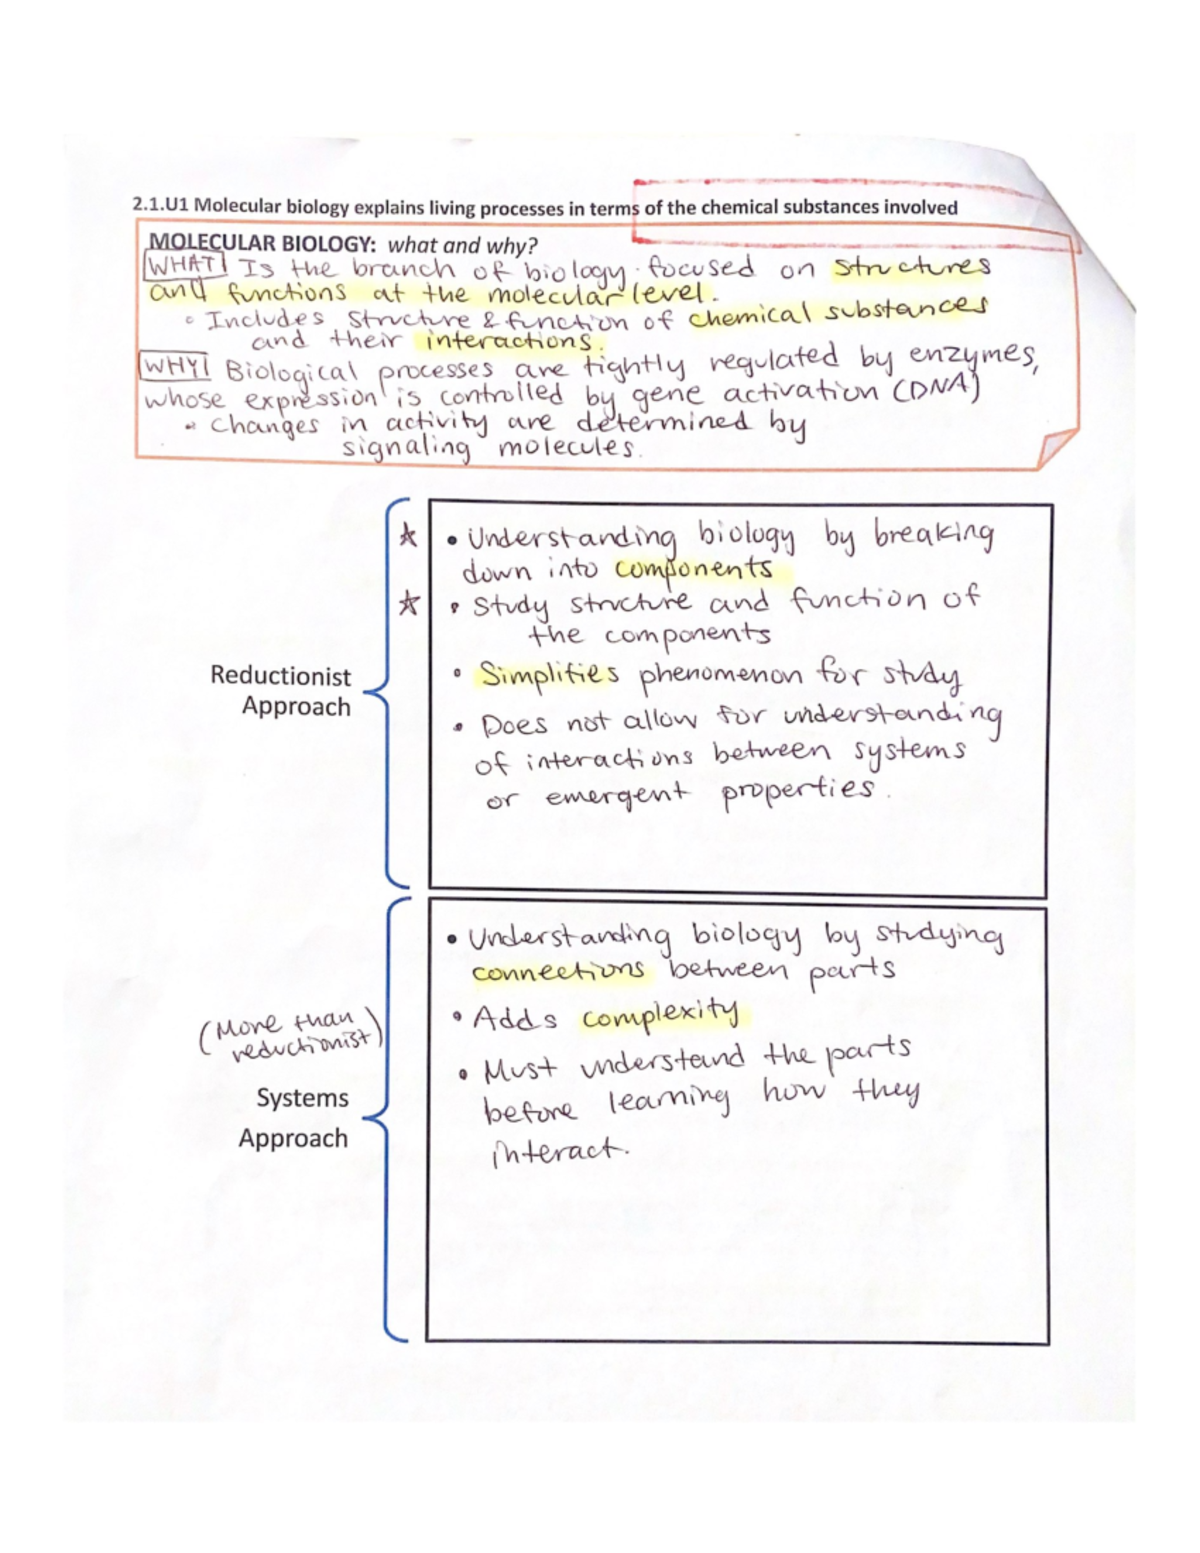 2.1.U1 Molecular biology explains living processes in terms of the chemical substances involved
MOLECULAR BIOLOGY: what and why?
WHAT! Is the branch of biology focused on structures
and functions at the molecular level.
Includes structure & function of chemical substances
and their interactions.
WHY! Biological processes are tightly regulated by enzymes,
whose expression is controlled by gene activation (DNA)
Changes in activity are determined by
signaling molecules.
• Understanding biology by breaking
down into components
• Study structure and function of
the components
• Simplifies phenomenon for study
Reductionist
Approach
• Does not allow for understanding
of interactions between systems
or emergent properties.
• Understanding biology by studying
connections between parts
• Adds complexity
(More than
reductionist)
• Must understand the parts
before learning how they
interact.
Systems
Approach